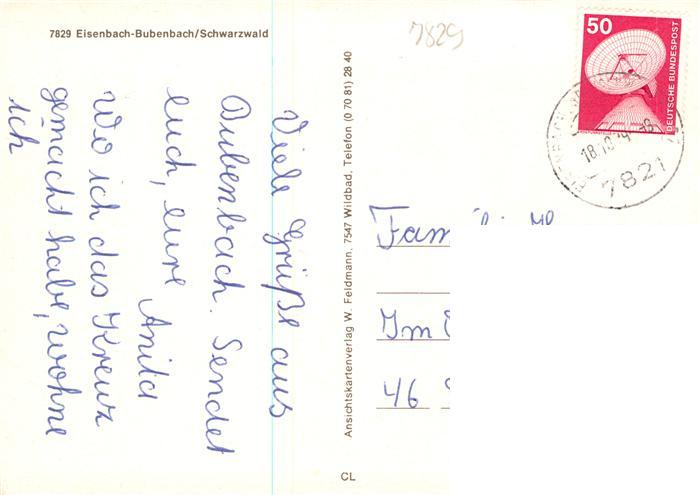 7829 Eisenbach-Bubenbach/Schwarzwald
Viele Grüße aus
Bubenbach. Sendet
euch, eure Anita
Wo ich das Kreuz
gemacht habe, wohne
ich
Ansichtskartenverlag W. Feldmann, 7547 Wildbad, Telefon (0 70 81) 28 40
CL
7829
50
DEUTSCHE BUNDESPOST
7821
Fam
Im
46